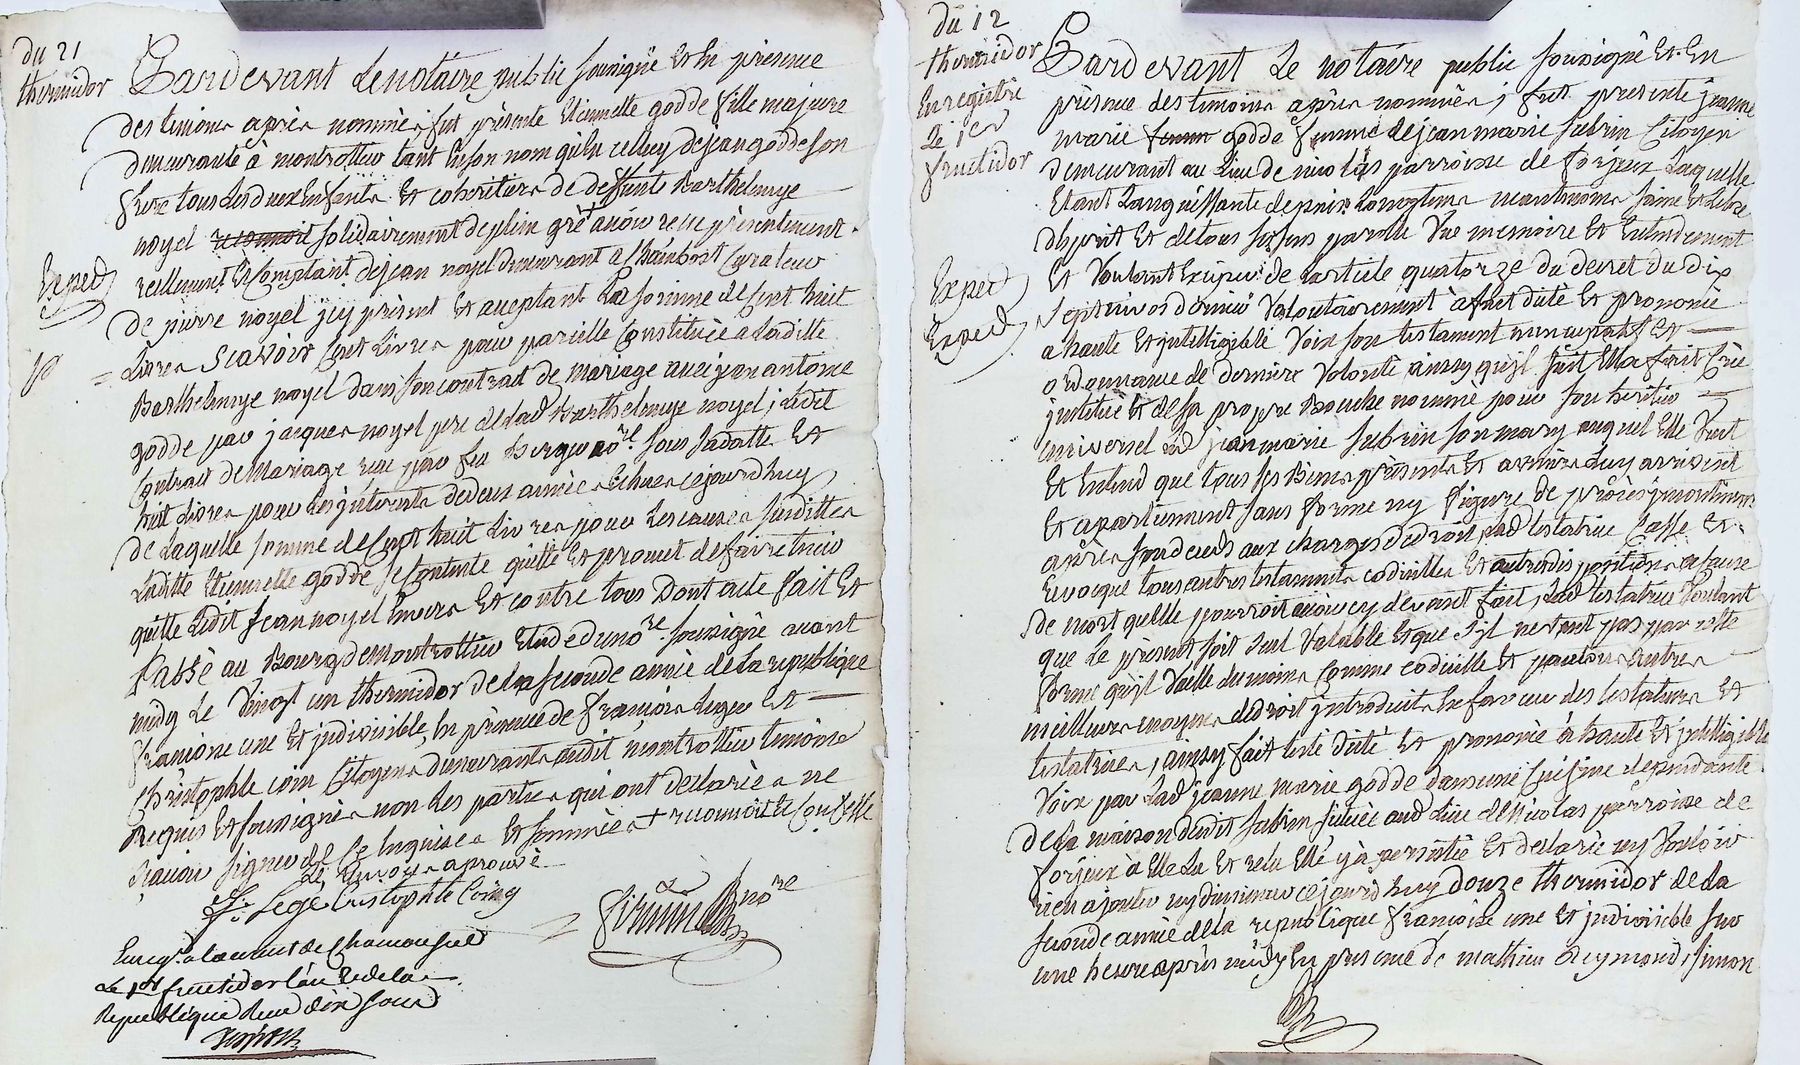 du 21
thermidor
Pardevant Le notaire public soussigné Et En présence
des temoins après nommés fut présente Etiennette godde fille majeure
demeurante à montrottier tant En son nom qu'En celluy de jean godde son
frere tous Les deux Enfants Et cohéritiers de deffunte Barthelemye
noyel reconnoit solidairement de plein gré + avoir recu présentement
réellement Et Comptant de jean noyel demeurant a Chambost Curateur
Exped
de pierre noyel icy présent Et acceptant La somme de Cent huit
Livres Scavoir Cent Livres pour pareille Constituée a Laditte
Barthelemye noyel dans son contrat de mariage avec jean antoine
godde par jacques noyel pere de Lad Barthelemye noyel, Ledit
Contrat de Mariage reçu par feu no.re sous sa datte Et
huit Livres pour Les interets de deux années Echues cejourdhuy
de Laquelle somme de Cent huit Livres pour Les causes susdittes
Laditte Etiennette godde se contente quitte Et promet de faire tenir
quitte Ledit Jean noyel Envers Et contre tous Dont acte fait Et
Passé au Bourg de Montrottier Etude du no.re soussigné avant
midy Le Vingt un thermidor de la seconde année de La republique
francoise une Et indivisible, En présence de francois Leger Et
Christophle coin Citoyens demeurants audit montrottier temoins
Requis Et soussignés non Les parties qui ont declarées ne
Scavoir signer de Ce Enquises Et sommées + reconnoit Et Confesse
Le Envoy approuvé
f. Lege Cristophle Coing
no.re
Enreg.é a la cunet de Chamousset
Le 1er fructidor l'an 2 de la
Republique Recu dix sous
du 12
thermidor
Enregistré
Le 1er
fructidor
Pardevant Le notaire public soussigné Et En
présence des temoins après nommés, fut presente jeanne
marie femme godde femme de jean marie subrin Citoyen
demeurant au Lieu de nicolas parroisse de forjeux Laquelle
Etant Languissante depuis Longtems neantmoins saine Et Libre
d'Esprit Et de tous ses sens parolle Vue memoire Et Entendement
Exped
Et Voulant Exciper de l'article quatorze du decret du dix
sept nivos dernier Volontairement à fait dite Et prononcé
Exped
a haute Et intelligible Voix son testament nuncupatif Et
ordonnance de derniere Volonté ainsy qu'il suit Ellea fait Crée
institué Et de sa propre Bouche nommé pour son héritier
universel Led jean marie subrin son mary auquel Elle Veut
Et Entend que tous ses Biens présents Et avenirs Luy arrivent
Et apartiennent sans forme ny figure de procès
après son decès aux charges de droit, Lad testatrice Casse Et
Revoque tous autres testaments codicilles Et autres dispositions a cause
de mort qu'elle pourroit avoir cy devant fait, Lad testatrice Voulant
que Le présent soit seul Valable Et que s'il ne Vaut pas par cette
forme qu'il Vaille du moins comme codicille Et par tous autres
meilleurs moyens de droit introduits En faveur des testateurs Et
testatrices, ainsy fait testé dité Et prononcé à haute Et intelligible
Voix par Lad jeanne marie godde dans une Cuisine dependante
de la maison dudit subrin située aud Lieu de Nicolas parroisse de
forjeux à Elle Lu Et relu Elle y à persistée Et declarée ny Vouloir
rien ajouter ny diminuer cejourd'huy douze thermidor de La
seconde année de La republique francoise une Et indivisible sur
une heure après midy En presence de mathieu Reymond, simon